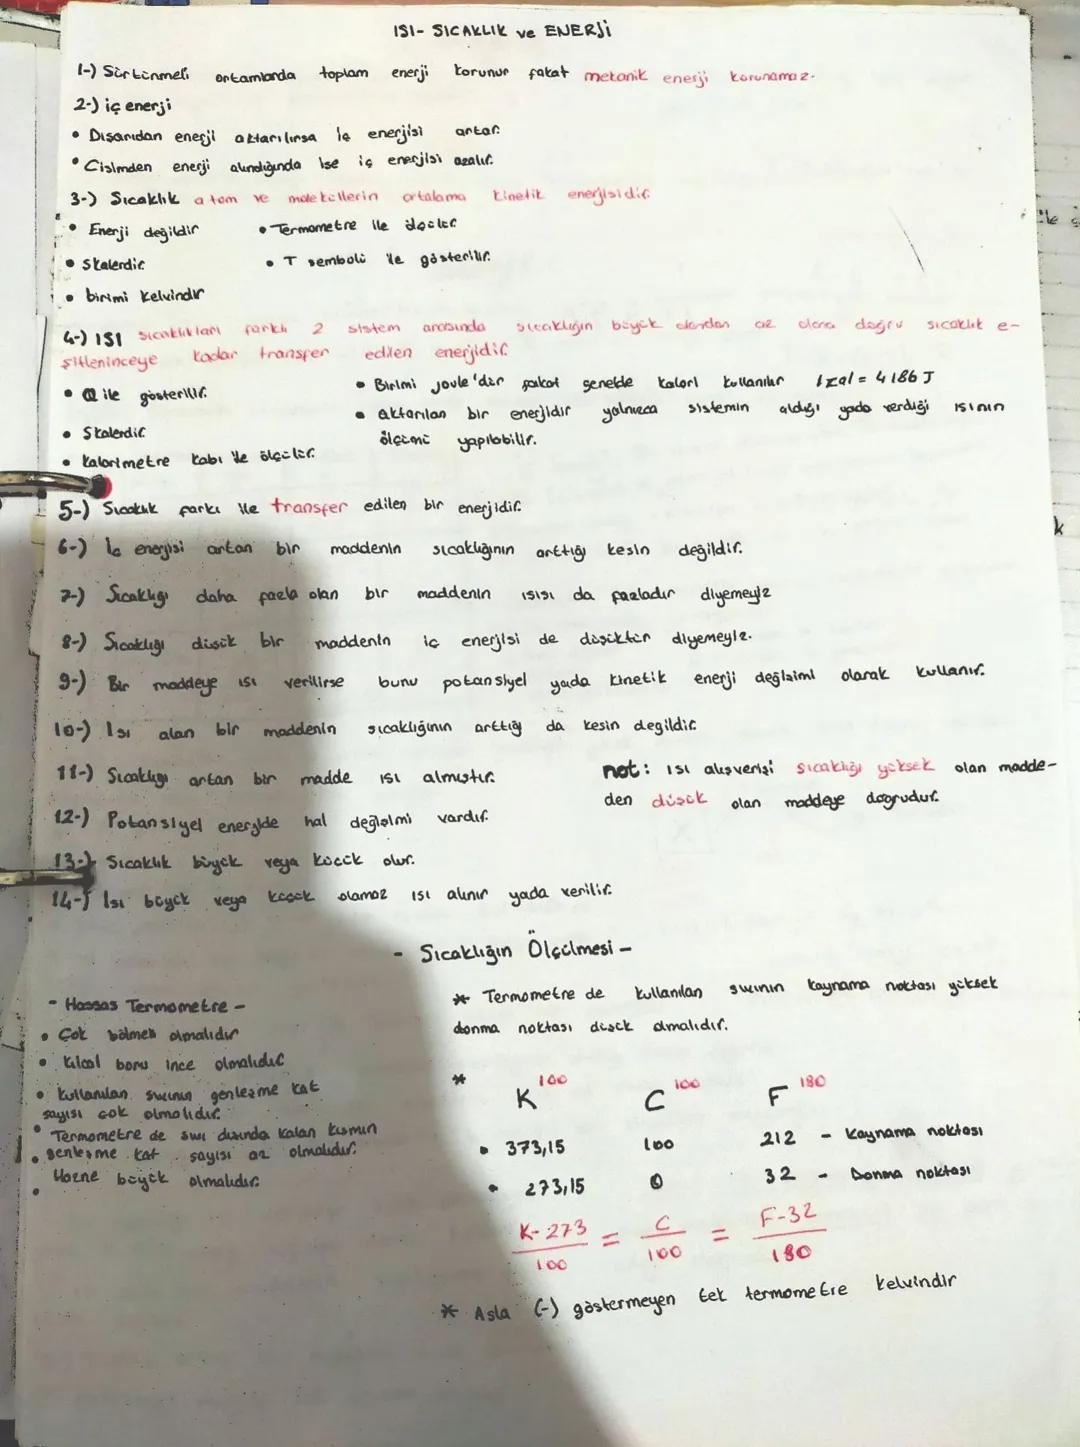 ISI- SICAKLIK ve ENERJİ
1-) Sürtünmeli ortamlarda toplam enerji korunur fakat mekanik enerji korunamaz.
2-) iç enerji
• Dışarıdan enerji aktarılırsa iç enerjisi artar.
• Cisimden enerji alındığında ise iç enerjisi azalır.
3-) Sıcaklık atom ve moleküllerin ortalama kinetik enerjisidir.
• Enerji değildir • Termometre ile ölçülür.
• Skalerdir. • T sembolü ile gösterilir.
• birimi kelvindir
4-) ISI sıcaklıkları farklı 2 sistem arasında sıcaklığın büyük olandan az olana doğru sıcaklık e-
şitleninceye kadar transfer edilen enerjidir.
• Q ile gösterilir. • Birimi joule'dür fakat genelde kalori kullanılır 1kal = 4186 J
• Skalerdir. • Aktarılan bir enerjidir yalnızca sistemin aldığı yada verdiği ısının
ölçümü yapılabilir.
• Kalorimetre kabı ile ölçülür.
5-) Sıcaklık farkı ile transfer edilen bir enerjidir.
6-) İç enerjisi artan bir maddenin sıcaklığının arttığı kesin değildir.
7-) Sıcaklığı daha fazla olan bir maddenin ısısı da fazladır diyemeyiz
8-) Sıcaklığı düşük bir maddenin iç enerjisi de düşüktür diyemeyiz.
9-) Bir maddeye ısı verilirse bunu potansiyel yada kinetik enerji değişimi olarak kullanır.
10-) Isı alan bir maddenin sıcaklığının arttığı da kesin degildir.
11-) Sıcaklığı artan bir madde ısı almıştır.
not: ısı alışverişi sıcaklığı yüksek olan madde-
den düşük olan maddeye dogrudur.
12-) Potansiyel enerjide hal değişimi vardır.
13-) Sıcaklık büyük veya küçük olur.
14-) Isı büyük veya küçük olamaz ısı alınır yada verilir.
- Sıcaklığın Ölçülmesi -
- Hassas Termometre -
• Çok bölmeli olmalıdır
• Kılcal boru ince olmalıdır
• Kullanılan sıvının genleşme kat
sayısı çok olmalıdır.
• Termometre de sıvı dışında kalan kısmın
• genleşme kat sayısı az olmalıdır.
Hazne büyük olmalıdır.
•
* Termometre de kullanılan sıvının kaynama noktası yüksek
donma noktası düşük olmalıdır.
* K 100 C 100 F 180
• 373,15 100 212 - Kaynama noktası
• 273,15 0 32 - Donma noktası
K-273/100 = C/100 = F-32/180
* Asla (-) göstermeyen tek termometre kelvindir